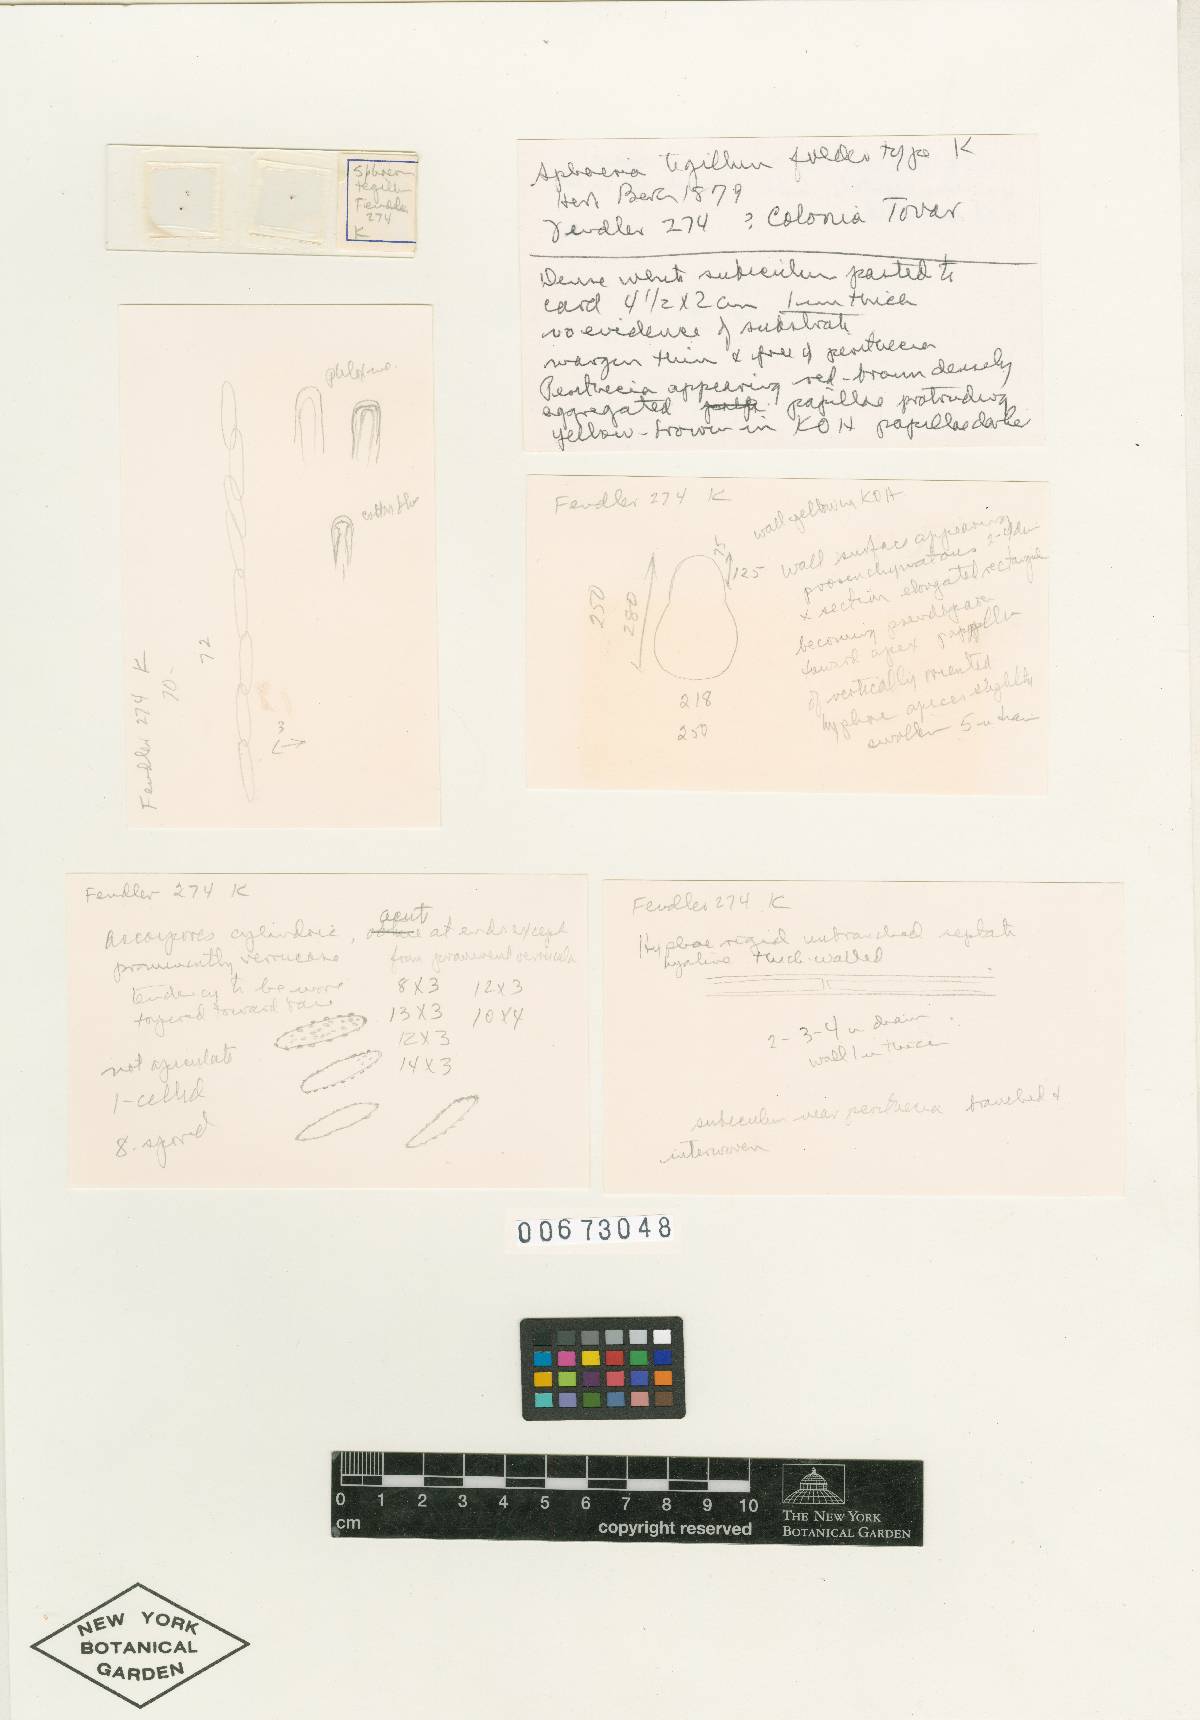 Sphaeria
tegillum
Fendler
274
K
Sphaeria tegillum folder type K
Herb Berk 1879
Fendler 274 ? Colonia Tovar
Dense white subiculum pasted to
card 4 1/2 X 2 cm 1 mm thick
no evidence of substrate
margin thin & free of perithecia
Perithecia appearing red-brown densely
aggregated papillae protruding
yellow-brown in KOH papillae darker
phloxine
cotton blue
Fendler 274 K
70-
72
3
Fendler 274 K
wall yellow in KOH
75
125
250
280
218
250
wall surface appearing
prosenchymatous 2-4 diam
x section elongated rectangular
becoming
toward apex papilla
of vertically oriented
hyphae apices slightly
swollen 5 u diam
Fendler 274 K
Ascospores cylindric, acute at ends except
prominently verrucose from prominent verrucula
tendency to be more
tapered toward base
8 X 3 12 X 3
13 X 3 10 X 4
12 X 3
14 X 3
not apiculate
1-celled
8-spored
Fendler 274 K
Hyphae rigid unbranched septate
hyaline thick-walled
2-3-4 u diam
wall 1 u thick
subiculum near perithecia branched &
interwoven
00673048
0 1 2 3 4 5 6 7 8 9 10
cm
copyright reserved
THE NEW YORK
BOTANICAL GARDEN
NEW YORK
BOTANICAL
GARDEN